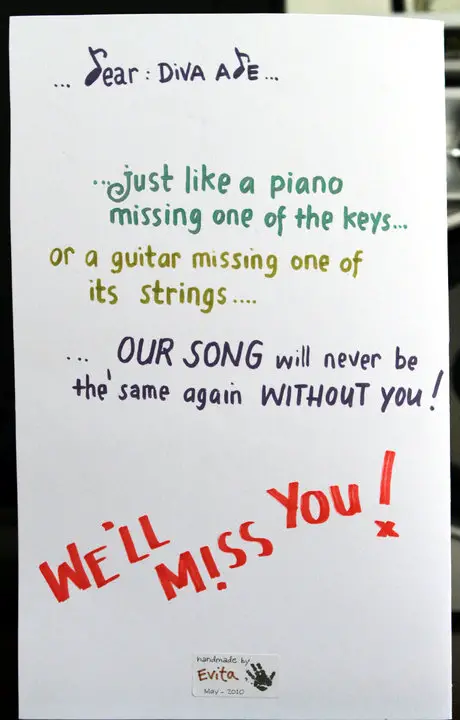 ... Dear : DiVA ADE ...
...just like a piano
missing one of the keys...
or a guitar missing one of
its strings....
... OUR SONG will never be
the same again WITHOUT YOU!
WE'LL MISS YOU!
x
handmade by
Evita
May - 2010